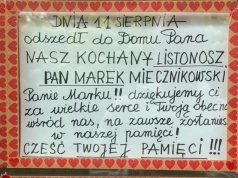 DNIA 11 SIERPNIA
odszedł do Domu Pana
NASZ KOCHANY LISTONOSZ
PAN MAREK MIECZNIKOWSKI
Panie Marku!! dziękujemy ci
za wielkie serce i Twoją obecno
wśród nas, na zawsze zostanies
w naszej pamięci!
CZEŚĆ TWOJEJ PAMIĘCI !!!